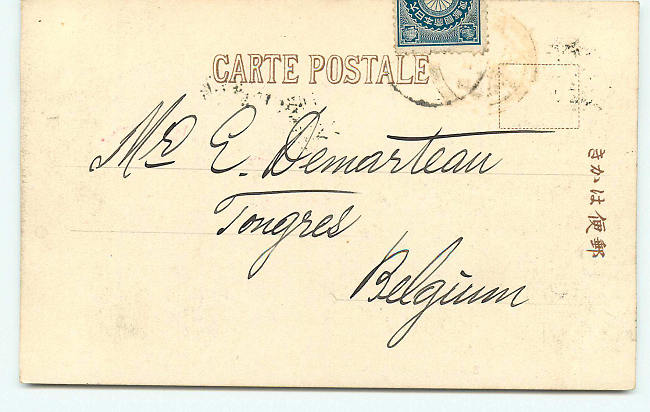 CARTE POSTALE
Mr E. Demarteau
Tongres
Belgium
きかは便郵